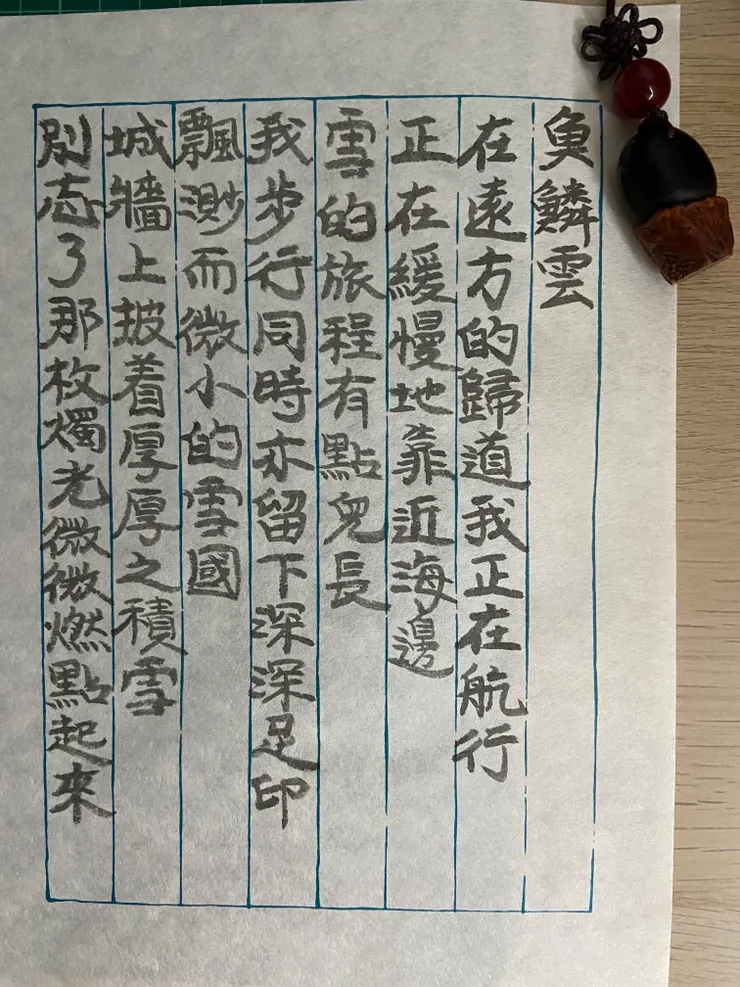 魚鱗雲
在遠方的歸道我正在航行
正在緩慢地靠近海邊
雪的旅程有點兒長
我步行同時亦留下深深足印
飄渺而微小的雪國
城牆上披着厚厚之積雪
別忘了那枚燭光微微燃點起來